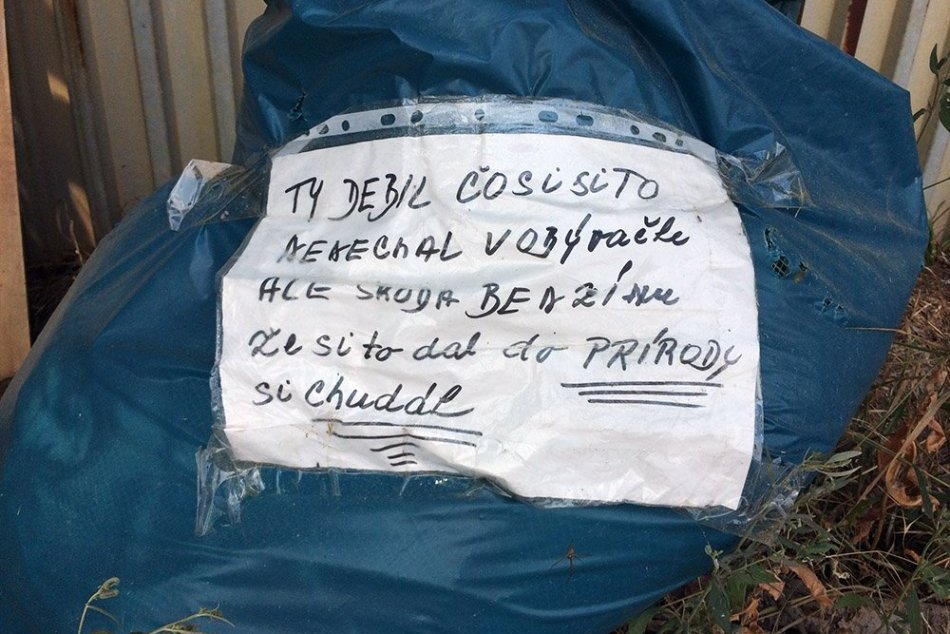 TY DEBIL ČO SI SI TO
NENECHAL V OBÝVAČKE
ALE ŠKODA BENZÍNU
že si to dal do PRÍRODY
si chudák